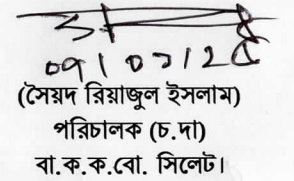 (সৈয়দ রিয়াজুল ইসলাম)
পরিচালক (চ.দা)
বা.ক.ক.বো. সিলেট।